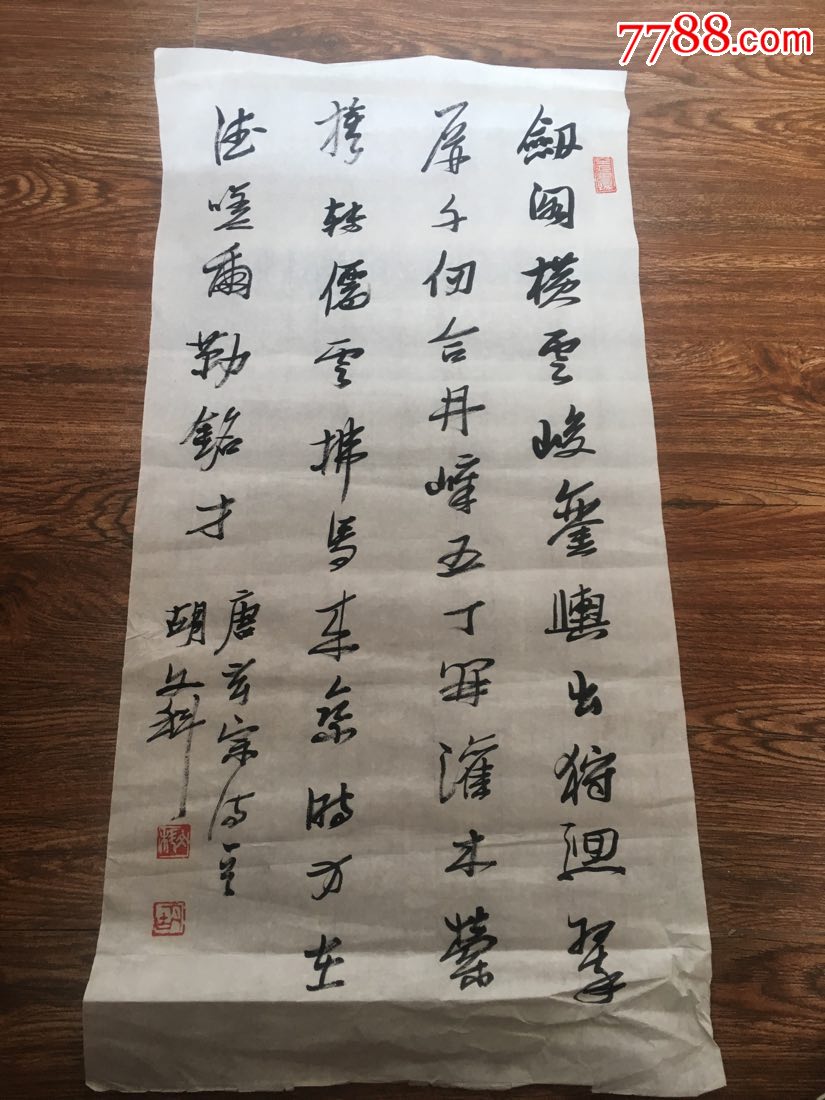 7788.com
劔閣横雲峻鑾輿出狩迴翠
屏千仞合丹嶂五丁開灌木縈
旗轉僊雲拂馬来乘時方在
德嗟爾勒銘才
唐玄宗诗一首
胡文科